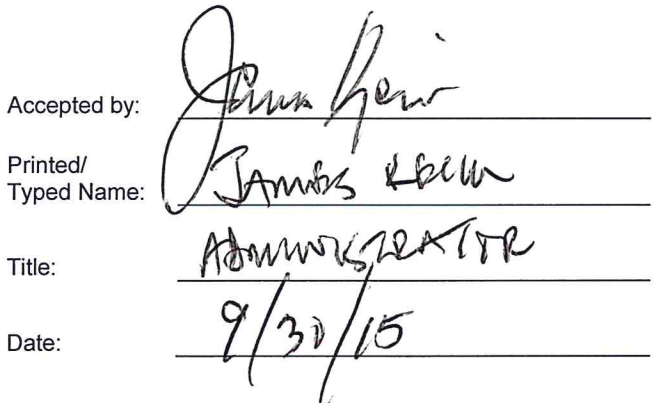 Accepted by:
Printed/
Typed Name: JAMES
Title: ADMINISTRATOR
Date: 9/30/15